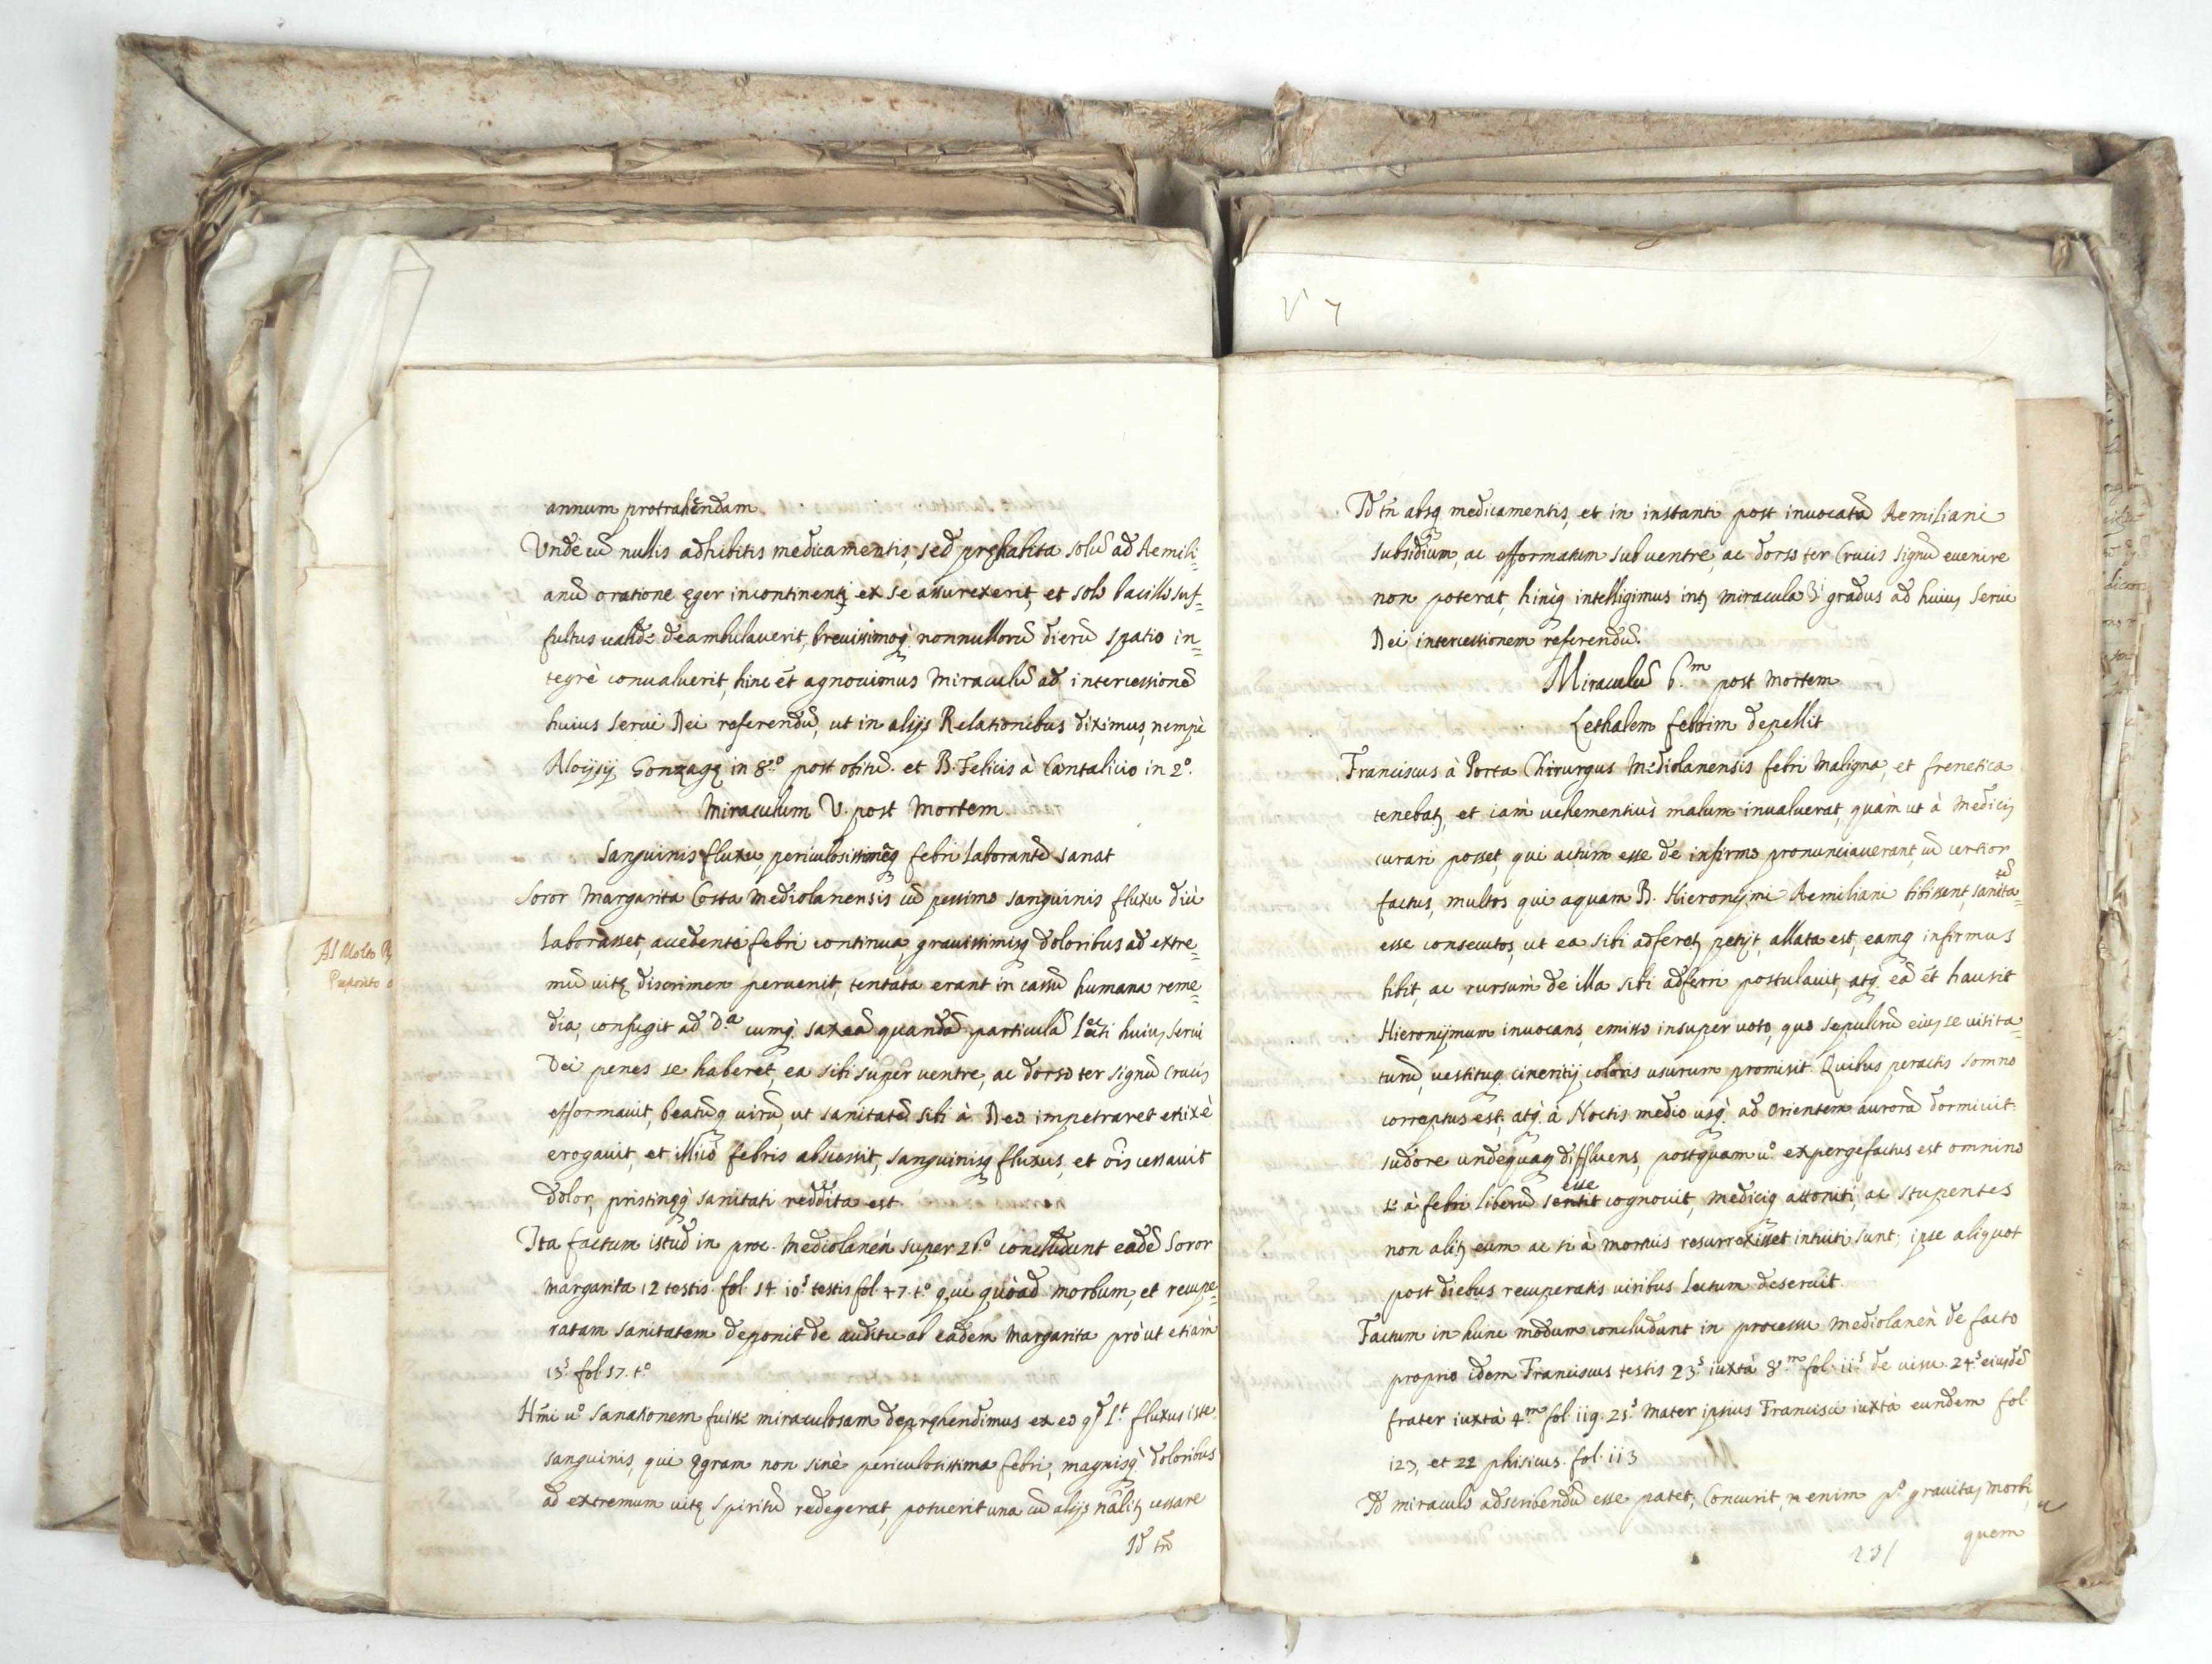 annum protrahēndam
Vndè cū nullis adhibitis medicamentis, sed pręhabita solū ad Aemili=
anū oratione ęger incontinenti ex se assurexerit, et solo bacillo suf=
fultus validè deambulauerit, breuissimoq; nonnullorū dierū spatio in=
tegrè conualuerit, hinc ēt agnouimus miraculū ad intercessionē
huius serui Dei referendū, ut in alijs Relationibus diximus, nempè
Aloijsij Gonzagę in 8.º post obitū. et B. Felicis à Cantalicio in 2º.
Miraculum V. post mortem
Sanguinis fluxu, periculosissimęq; febri laborantē sanat
Soror Margarita Costa Mediolanensis cū pessimo sanguinis fluxu diù
laborasset, accedente febri continua, grauissimisq; doloribus ad extre=
mū uitę discrimen peruenit, tentata erant in cassū humana reme=
dia, confugit ad D.ª cumq; saxeā quandā particulā lecti huius serui
Dei penes se haberet, ea sibi super uentre, ac dorso ter signū crucis
efformauit, beatūq; uirū, ut sanitatē sibi à Deo impetraret enixè
erogauit, et illicò febris abscessit, sanguinisq; fluxus, et ōis cessauit
dolor, pristinęq; sanitati reddita est.
Ita factum istud in proc. Mediolanēn super 26.º concludunt eadē Soror
Margarita 12 testis fol. 54 10.s testis fol. 47. t.º qui quòad morbum, et recupe=
ratam sanitatem deponit de auditu ab eadem Margarita pròut etiam
13.s fol. 57. t.º
Hm̄i uº sanationem fuisse miraculosam depręhendimus ex eo qd lt fluxus iste
sanguinis, qui ęgram non sinè periculosissima febri, magnisq; doloribus
ad extremum uitę spiritū redegerat, potuerit una cū alijs nāliter cessare
Id tn̄
Id tn̄ absq; medicamentis, et in instanti post inuocatū Aemiliani
subsidium, ac efformatum sub uentre, ac dorso ter Crucis signū euenire
non poterat, hincq; intelligimus inter miracula 3.i gradus ad huius serui
Dei intercessionem referendū.
Miraculū 6.m post mortem
Lethalem febrim depellit
Franciscus à Porta Chirurgus Mediolanensis febri maligna, et frenetica
tenebatur, et iam uehementiùs malum inualuerat, quàm ut à medicis
curari posset, qui actum esse de infirmo pronunciauerant, cū certior
factus, multos qui aquam B. Hieronijmi Aemiliani bibissent, sanita=tē
esse consecutos, ut ea sibi adferetur petijt, allata est, eamq; infirmus
bibit, ac rursum de illa sibi adferri postulauit, atq; eā ēt hausit
Hieronijmum inuocans, emisso insuper uoto, quo sepulcrū eius se uisita=
turū, uestituq; cineritij coloris usurum promisit. Quibus peractis somno
correptus est, atq; à noctis medio usq; ad orientem aurorā dormiuit
sudore undequaq; diffluens, postquam uº expergefactus est omnino
se à febri liberū esse sentit cognouit, medicisq; attoniti, ac stupentes
non aliter eum ac si à mortuis resurrexisset intuiti sunt; ipse aliquot
post diebus recuperatis uiribus lectum deseruit.
Factum in hunc modum concludunt in processu Mediolanēn de facto
proprio idem Franciscus testis 23.s iuxtà 8.m fol. 115 de uisu 24.s eiusdē
frater iuxtà 4.m fol. 119. 25.s mater ipsius Francisci iuxtà eundem fol.
123, et 22 phisicus fol. 113
Id miraculo adscribendū esse patet, Concurit, enim pº grauitas morbi,
quem
231
V 7
Al Molto R
Preposito